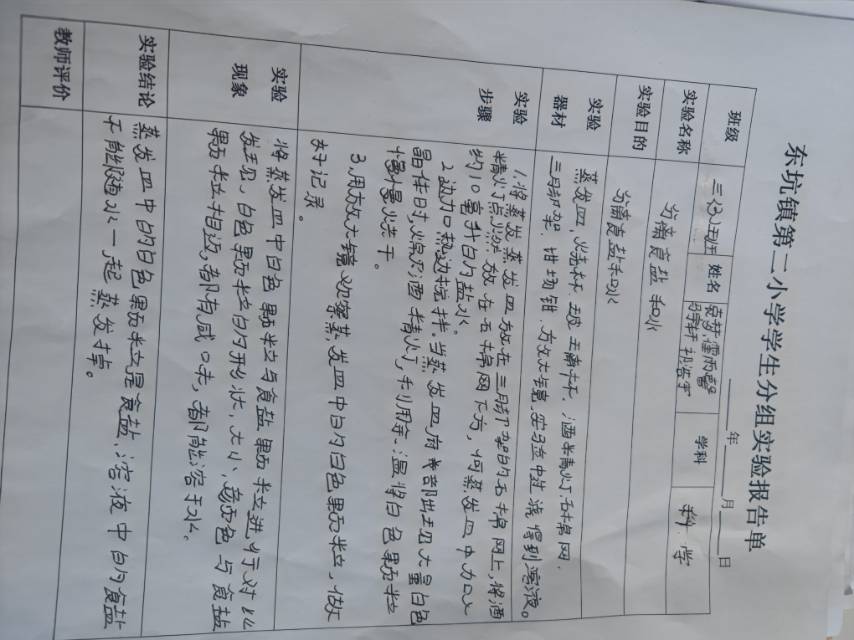 东坑镇第二小学学生分组实验报告单
年 月 日
班级 三(3)班 姓名 学科 科学
实验名称 分离食盐和水
实验目的 分离食盐和水
实验器材 蒸发皿、烧杯、玻璃棒、酒精灯、石棉网、
三脚架、坩埚钳、放大镜、实验中过滤得到溶液。
实验步骤 1.将蒸发皿放在三脚架的石棉网上,将酒
精灯点燃放在石棉网下方,向蒸发皿中加入
约10毫升的盐水。
2.边加热边搅拌。当蒸发皿内部出现大量白色
晶体时,熄灭酒精灯,并利用余温将白色颗粒
慢慢烘干。
3.用放大镜观察蒸发皿中的白色颗粒,做
好记录。
实验现象 将蒸发皿中白色颗粒与食盐颗粒进行对比
发现,白色颗粒的形状、大小、颜色与食盐
颗粒相近,都有咸味,都能溶于水。
实验结论 蒸发皿中的白色颗粒是食盐,溶液中的食盐
不能随水一起蒸发掉。
教师评价